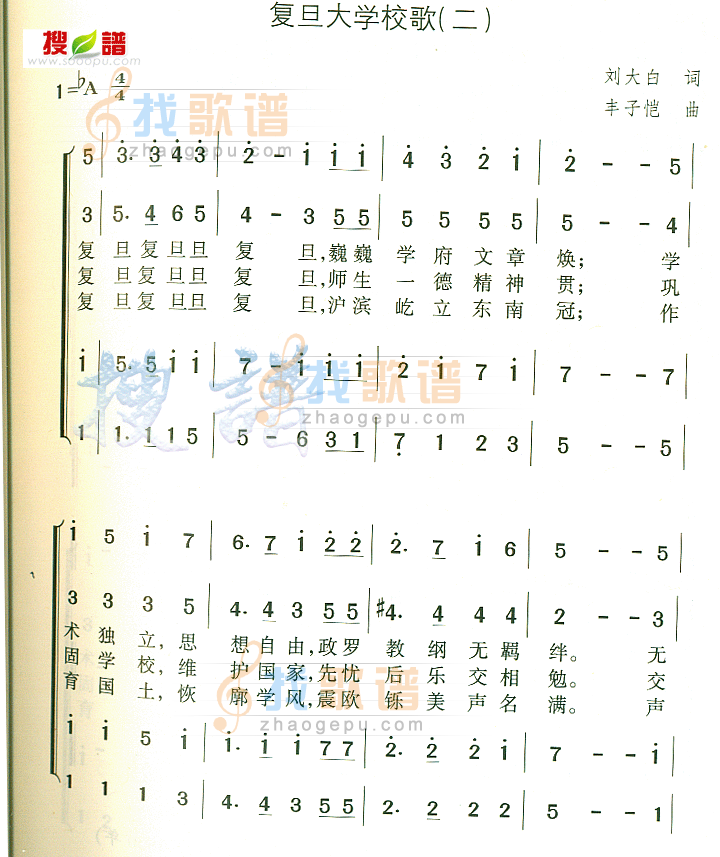 复旦大学校歌(二)
搜谱
www.sooopu.com
1=♭A 4/4
刘大白 词
丰子恺 曲
找歌谱
zhaogepu.com
5 | 3̇. 3̇ 4̇ 3̇ | 2̇ - 1̇ 1̇ 1̇ | 4̇ 3̇ 2̇ 1̇ | 2̇ - - 5
3 | 5. 4 6 5 | 4 - 3 5 5 | 5 5 5 5 | 5 - - 4
复 旦复旦旦 复 旦,巍巍 学府文章焕; 学
复 旦复旦旦 复 旦,师生 一德精神贯; 巩
复 旦复旦旦 复 旦,沪滨 屹立东南冠; 作
1̇ | 5. 5 1̇ 1̇ | 7 - 1̇ 1̇ 1̇ | 2̇ 1̇ 7 1̇ | 7 - - 7
搜谱 找歌谱
zhaogepu.com
1 | 1. 1 1 5 | 5 - 6 3 1 | 7̣ 1 2 3 | 5 - - 5
1̇ 5 1̇ 7 | 6. 7 1̇ 2̇ 2̇ | 2̇. 7 1̇ 6 | 5 - - 5
3 3 3 5 | 4. 4 3 5 5 | #4. 4 4 4 | 2 - - 3
术独立,思 想自由,政罗 教纲无羁绊。 无
固学校,维 护国家,先忧 后乐交相勉。 交
育国土,恢 廓学风,震欧 铄美声名满。 声
找歌谱
zhaogepu.com
1̇ 1̇ 5 1̇ | 1̇. 1̇ 1̇ 7 7 | 2̇. 2̇ 2̇ 1̇ | 7 - - 1̇
1 1 1 3 | 4. 4 3 5 5 | 2. 2 2 2 | 5 - - 1